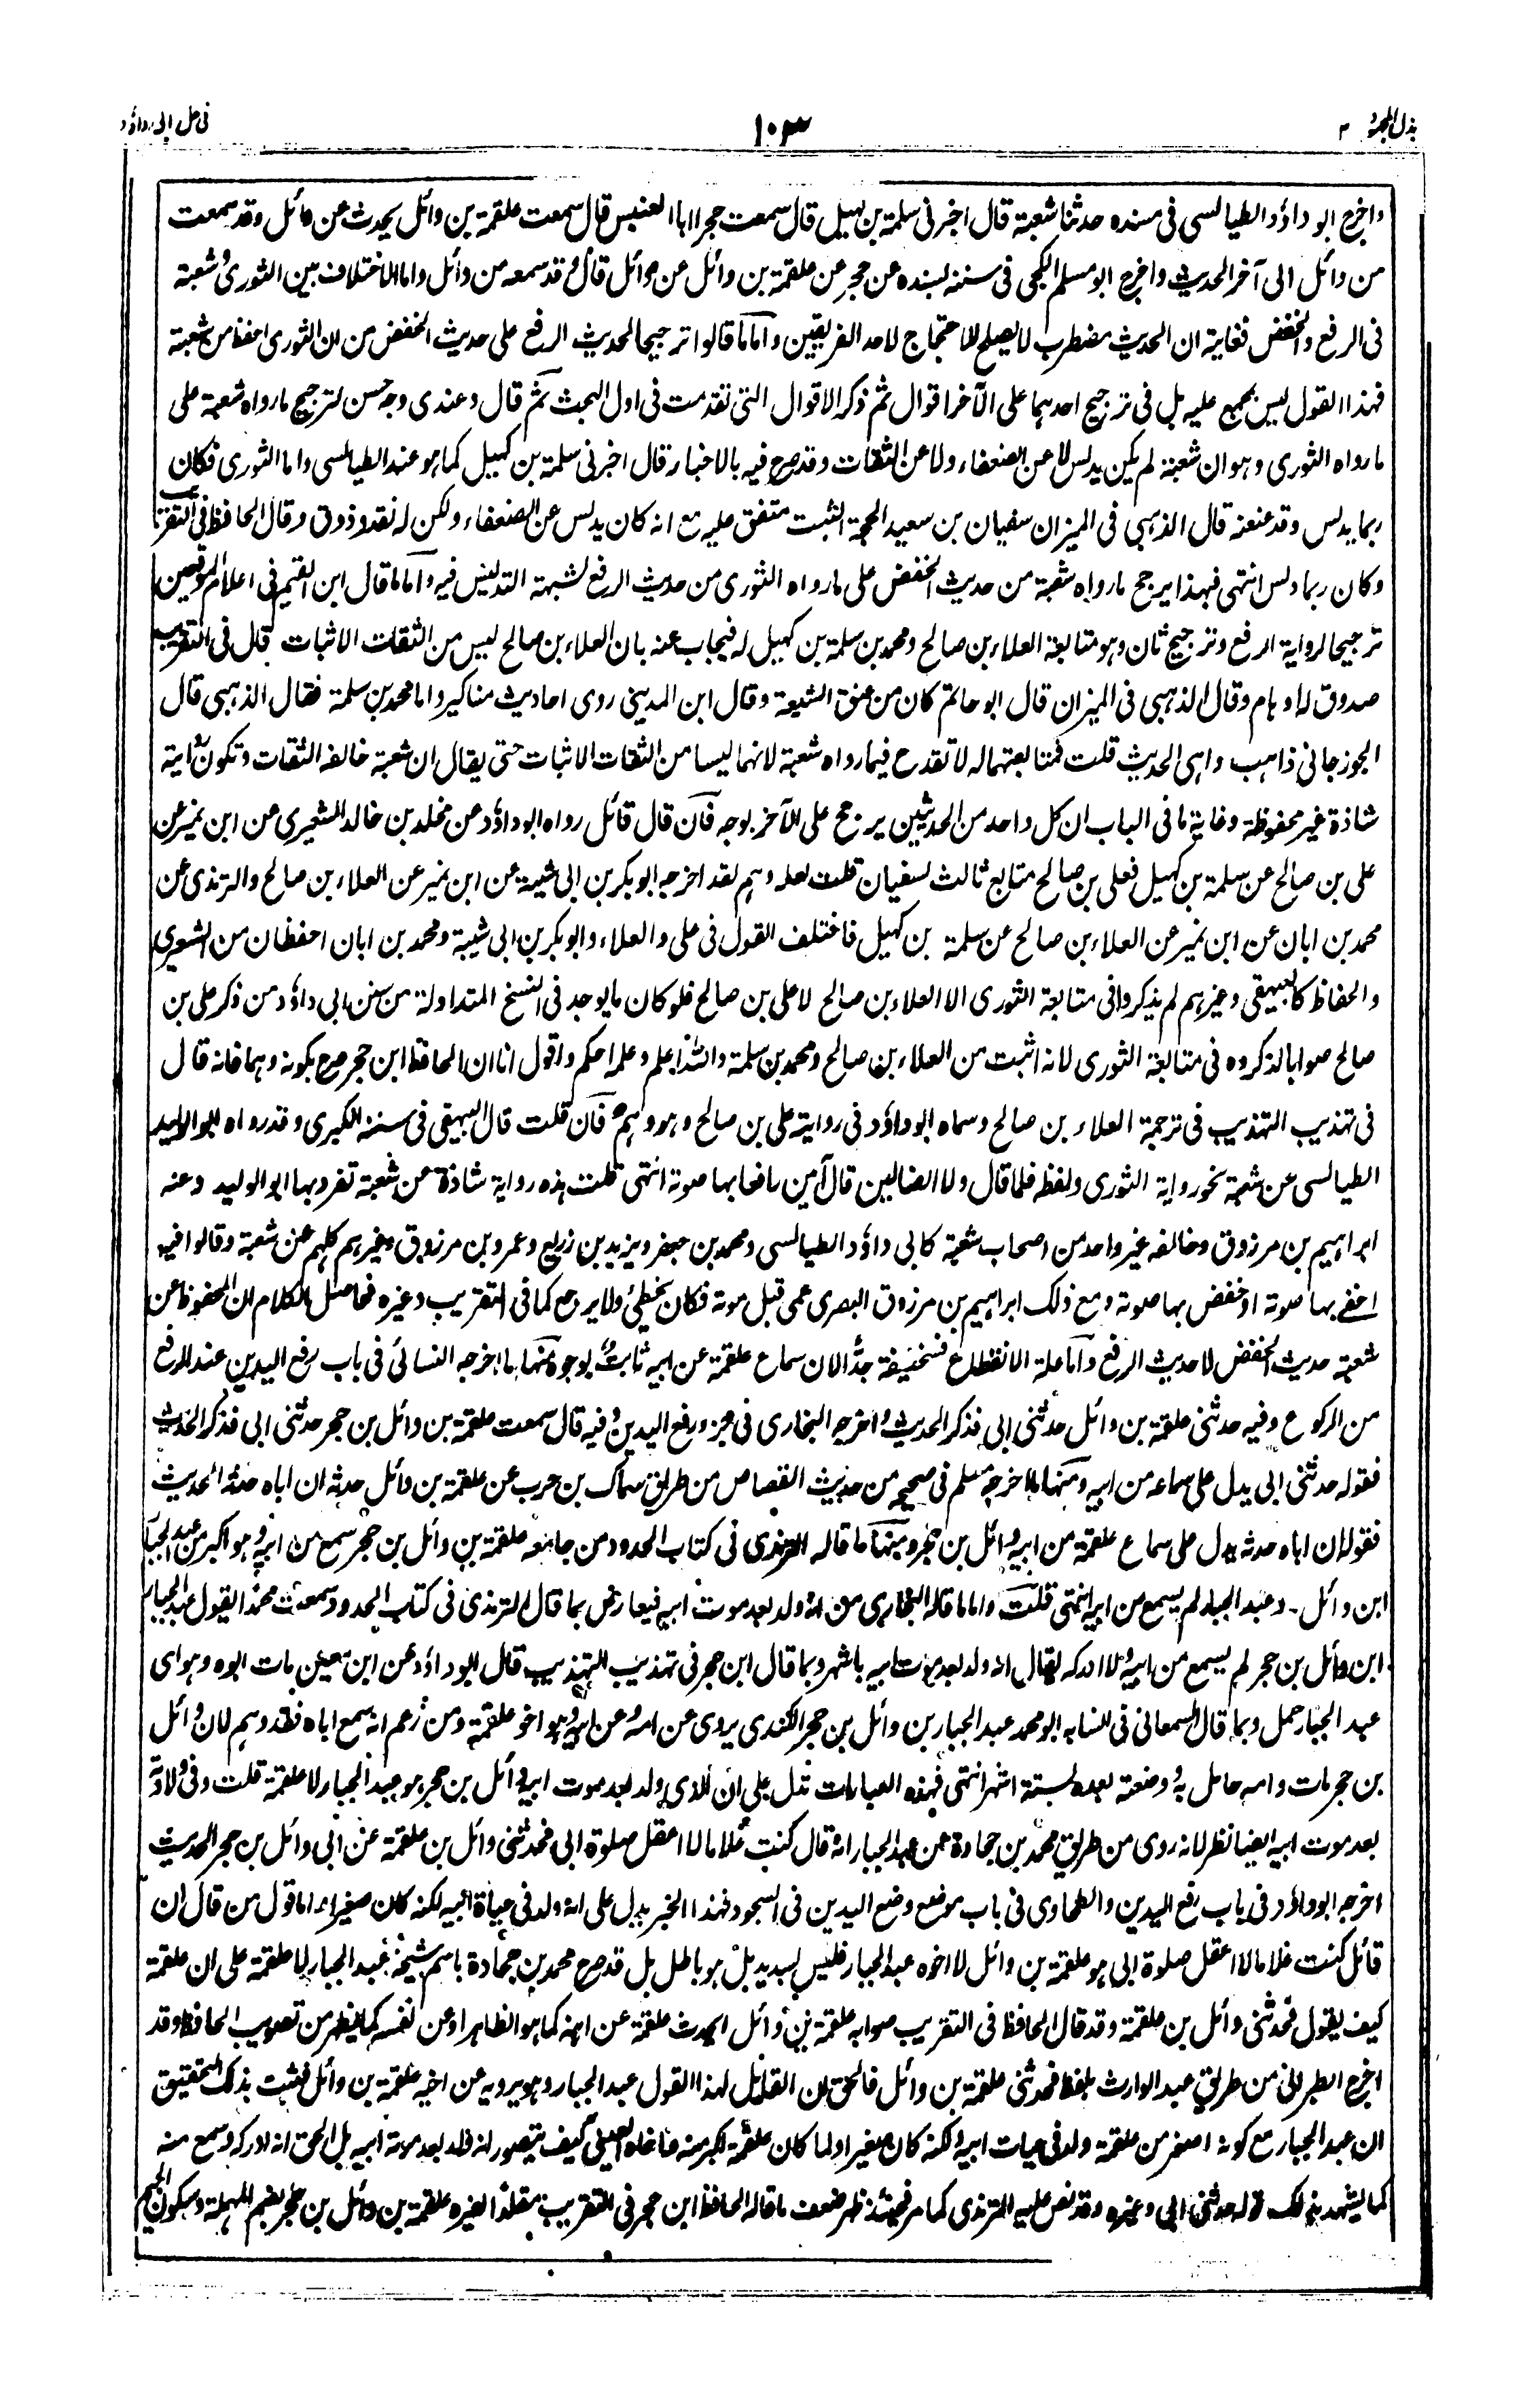 بذل المجهود ٢
١٠٣
في حل ابي داؤد
واخرج ابو داؤد الطيالسي في مسنده حدثنا شعبة قال اخبرني سلمة بن كهيل قال سمعت حجرا ابا العنبس قال سمعت علقمة بن وائل يحدث عن وائل وقد سمعت
من وائل الى آخر الحديث واخرج ابو مسلم الكجي في سننه بسنده عن حجر عن علقمة بن وائل عن وائل قال وقد سمعه من وائل واما الاختلاف بين الثوري وشعبة
في الرفع والخفض فغايته ان الحديث مضطرب لا يصلح للاحتجاج لاحد الفريقين واما ما قالوا ترجيحا لحديث الرفع على حديث الخفض من ان الثوري احفظ من شعبة
فهذا القول ليس بمجمع عليه بل في ترجيح احدهما على الآخر اقوال ثم ذكر الاقوال التي تقدمت في اول البحث ثم قال وعندي وجه حسن لترجيح ما رواه شعبة على
ما رواه الثوري وهو ان شعبة لم يكن يدلس لا عن الضعفاء ولا عن الثقات وقد صرح فيه بالاخبار قال اخبرني سلمة بن كهيل كما هو عند الطيالسي واما الثوري فكان
ربما يدلس وقد عنعنه قال الذهبي في الميزان سفيان بن سعيد الحجة الثبت متفق عليه مع انه كان يدلس عن الضعفاء ولكن له نقد وذوق وقال الحافظ في التقريب
وكان ربما دلس انتهى فبهذا يرجح ما رواه شعبة من حديث الخفض على ما رواه الثوري من حديث الرفع لشبهة التدليس فيه واما ما قال ابن القيم في اعلام الموقعين
ترجيحا لرواية الرفع وترجيح ثان وهو متابعة العلاء بن صالح ومحمد بن سلمة بن كهيل له فيجاب عنه بان العلاء بن صالح ليس من الثقات الاثبات قال في التقريب
صدوق له اوهام وقال الذهبي في الميزان قال ابو حاتم كان من عتق الشيعة وقال ابن المديني روى احاديث مناكير واما محمد بن سلمة فقال الذهبي قال
الجوزجاني ذاهب واهي الحديث قلت فمتابعتهما له لا تقدح فيما رواه شعبة لانهما ليسا من الثقات الاثبات حتى يقال ان شعبة خالفه الثقات وتكون رواية
شاذة غير محفوظة وغاية ما في الباب ان كل واحد من الحديثين يرجح على الآخر بوجه فان قال قائل رواه ابو داؤد عن مخلد بن خالد الشعيري عن ابن نمير عن
علي بن صالح عن سلمة بن كهيل فعلي بن صالح متابع ثالث لسفيان قلت لعله وهم لقد اخرجه ابو بكر بن ابي شيبة عن ابن نمير عن العلاء بن صالح والترمذي عن
محمد بن ابان عن ابن نمير عن العلاء بن صالح عن سلمة بن كهيل فاختلف القول في علي والعلاء وابو بكر بن ابي شيبة ومحمد بن ابان احفظان من الشعيري
والحفاظ كالبيهقي وغيرهم لم يذكروا في متابعة الثوري الا العلاء بن صالح لا علي بن صالح فلو كان ما يوجد في النسخ المتداولة من سنن ابي داؤد من ذكر علي بن
صالح صوابا لذكروه في متابعة الثوري لانه اثبت من العلاء بن صالح ومحمد بن سلمة والله اعلم وعلمه احكم واقول انا ان الحافظ ابن حجر صرح بكونه وهما فانه قال
في تهذيب التهذيب في ترجمة العلاء بن صالح وسماه ابو داؤد في روايته علي بن صالح وهو وهم فان قلت قال البيهقي في سننه الكبرى وقد رواه ابو الوليد
الطيالسي عن شعبة بنحو رواية الثوري ولفظه فلما قال ولا الضالين قال آمين رافعا بها صوته انتهى قلت هذه رواية شاذة عن شعبة تفرد بها ابو الوليد وعنه
ابراهيم بن مرزوق وخالفه غير واحد من اصحاب شعبة كابي داؤد الطيالسي ومحمد بن جعفر ويزيد بن زريع وعمرو بن مرزوق وغيرهم كلهم عن شعبة وقالوا فيه
اخفى بها صوته او خفض بها صوته ومع ذلك ابراهيم بن مرزوق البصري عمي قبل موته فكان يخطئ ولا يرجع كما في التقريب وغيره فحاصل الكلام ان المحفوظ عن
شعبة حديث الخفض لا حديث الرفع واما علة الانقطاع فسخيفة جدا لان سماع علقمة عن ابيه ثابت بوجوه منها ما اخرجه النسائي في باب رفع اليدين عند الرفع
من الركوع وفيه حدثني علقمة بن وائل حدثني ابي فذكر الحديث واخرجه البخاري في جزء رفع اليدين وفيه قال سمعت علقمة بن وائل بن حجر حدثني ابي فذكر الحديث
فقوله حدثني ابي يدل على سماعه من ابيه ومنها ما اخرجه مسلم في صحيحه من حديث القصاص من طريق سماك بن حرب عن علقمة بن وائل حدثه ان اباه حدثه الحديث
فقوله ان اباه حدثه يدل على سماع علقمة من ابيه وائل بن حجر ومنها ما قاله الترمذي في كتاب الحدود من جامعه علقمة بن وائل بن حجر سمع من ابيه وهو اكبر من عبد الجبار
ابن وائل - وعبد الجبار لم يسمع من ابيه انتهى قلت واما ما قاله البخاري من انه ولد بعد موت ابيه فيعارض بما قال الترمذي في كتاب الحدود سمعت محمدا يقول عبد الجبار
ابن وائل بن حجر لم يسمع من ابيه ولا ادركه يقال انه ولد بعد موت ابيه باشهر وبما قال ابن حجر في تهذيب التهذيب قال ابو داؤد عن ابن معين مات ابوه وهو اي
عبد الجبار حمل وبما قال السمعاني في انسابه ابو محمد عبد الجبار بن وائل بن حجر الكندي يروي عن امه عن ابيه وهو اخو علقمة ومن زعم انه سمع اباه فقد وهم لان وائل
بن حجر مات وامه حامل به وضعته بعده بستة اشهر انتهى فهذه العبارات تدل على ان الذي ولد بعد موت ابيه وائل بن حجر هو عبد الجبار لا علقمة قلت وفي ولادته
بعد موت ابيه ايضا نظر لانه روى من طريق محمد بن جحادة عن عبد الجبار انه قال كنت غلاما لا اعقل صلوة ابي فحدثني وائل بن علقمة عن ابي وائل بن حجر الحديث
اخرجه ابو داؤد في باب رفع اليدين والطحاوي في باب موضع وضع اليدين في السجود فهذا الخبر يدل على انه ولد في حياة ابيه لكنه كان صغيرا واما قول من قال ان
قائل كنت غلاما لا اعقل صلوة ابي هو علقمة بن وائل لا اخوه عبد الجبار فليس بسديد بل هو باطل بل قد صرح محمد بن جحادة باسم شيخه عبد الجبار لا علقمة على ان علقمة
كيف يقول فحدثني وائل بن علقمة وقد قال الحافظ في التقريب صوابه علقمة بن وائل ايحدث علقمة عن ابنه كما هو الظاهر او عن نفسه كما يظهر من تصويب الحافظ وقد
اخرج الطبراني من طريق عبد الوارث بلفظ فحدثني علقمة بن وائل فالحق ان القائل لهذا القول عبد الجبار وهو يرويه عن اخيه علقمة بن وائل فثبت بذلك التحقيق
ان عبد الجبار مع كونه اصغر من علقمة ولد في حيات ابيه ولكنه كان صغيرا ولما كان علقمة اكبر منه كيف يتصور انه ولد بعد موت ابيه بل الحق انه ادركه وسمع منه
كما يشهد بذلك قوله حدثني ابي وغيره وقد نص عليه الترمذي كما مر فحينئذ ظهر ضعف ما قاله الحافظ ابن حجر في التقريب مقلدا لغيره علقمة بن وائل بن حجر بضم المهملة وسكون الجيم